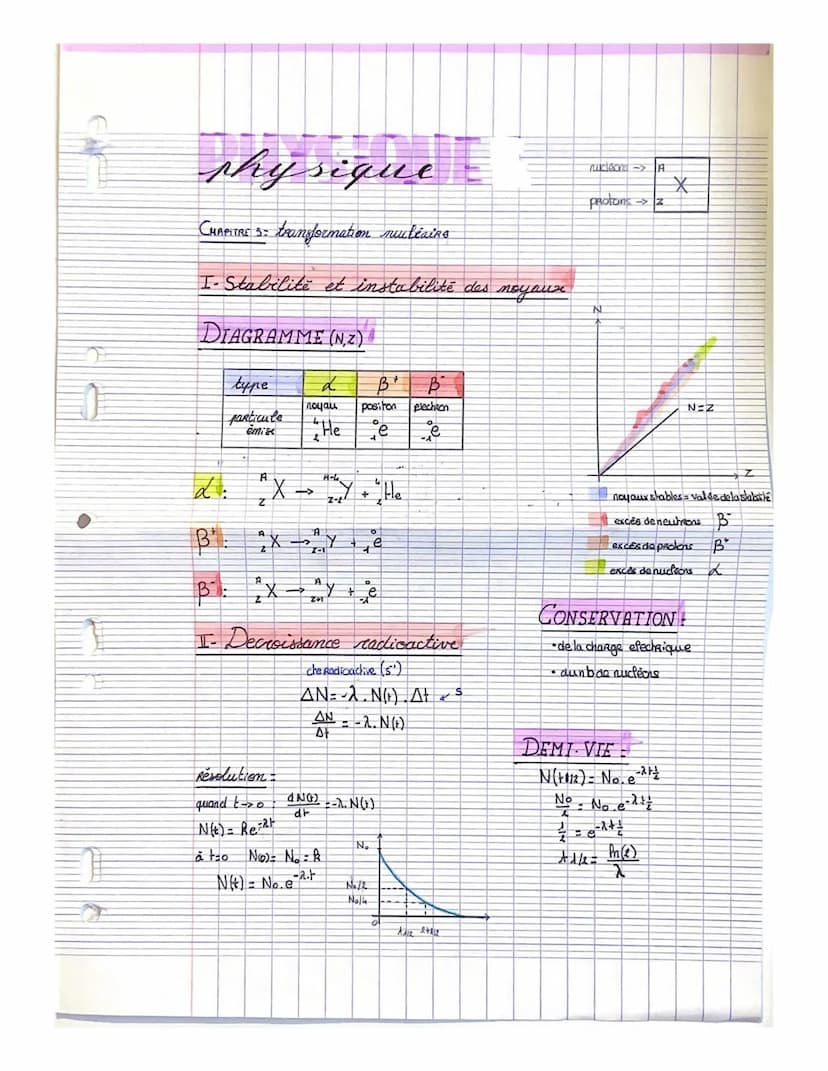 PHYSIQUE
physique
nucléons → A
X
protons → Z
CHAPITRE 3: transformation nucléaire
I- Stabilité et instabilité des noyaux
DIAGRAMME (N,Z)
type α β⁺ β⁻
particule émise noyau ⁴₂He positon ⁰₁e électron ⁰₋₁e
α: ᴬ_Z X → ᴬ⁻⁴_Z-2 Y + ⁴₂He
β⁺: ᴬ_Z X → ᴬ_Z-1 Y + ⁰₁e
β⁻: ᴬ_Z X → ᴬ_Z+1 Y + ⁰₋₁e
N
N=Z
Z
noyaux stables = vallée de la stabilité
excès de neutrons β⁻
excès de protons β⁺
excès de nucléons α
CONSERVATION:
• de la charge électrique
• du nb de nucléons
II- Decroissance radioactive
cte radioactive (s⁻¹)
ΔN = -λ . N(t) . Δt ← s
ΔN/Δt = -λ. N(t)
résolution =
quand t→0 : dN(t)/dt = -λ. N(t)
N(t) = Ke^-λt
à t=0 N(0) = N₀ = K
N(t) = N₀.e^-λ.t
N₀
N₀/2
N₀/4
0
t1/2 2t1/2
DEMI-VIE =
N(t1/2) = N₀.e^-λt½
N₀/2 = N₀.e^-λt½
1/2 = e^-λt½
t1/2 = ln(2)/λ